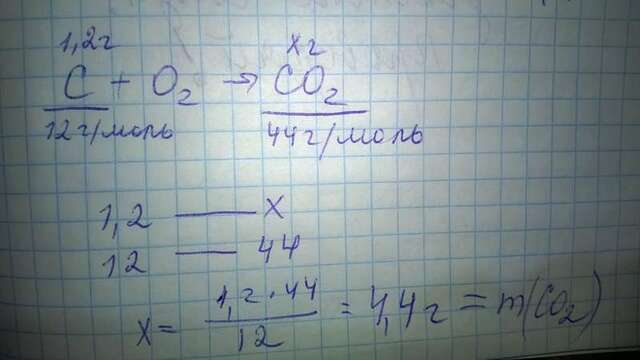 1,2г хг
C + O₂ → CO₂
12г/моль 44г/моль
1,2 — х
12 — 44
х = 1,2·44 / 12 = 4,4г = m(CO₂)